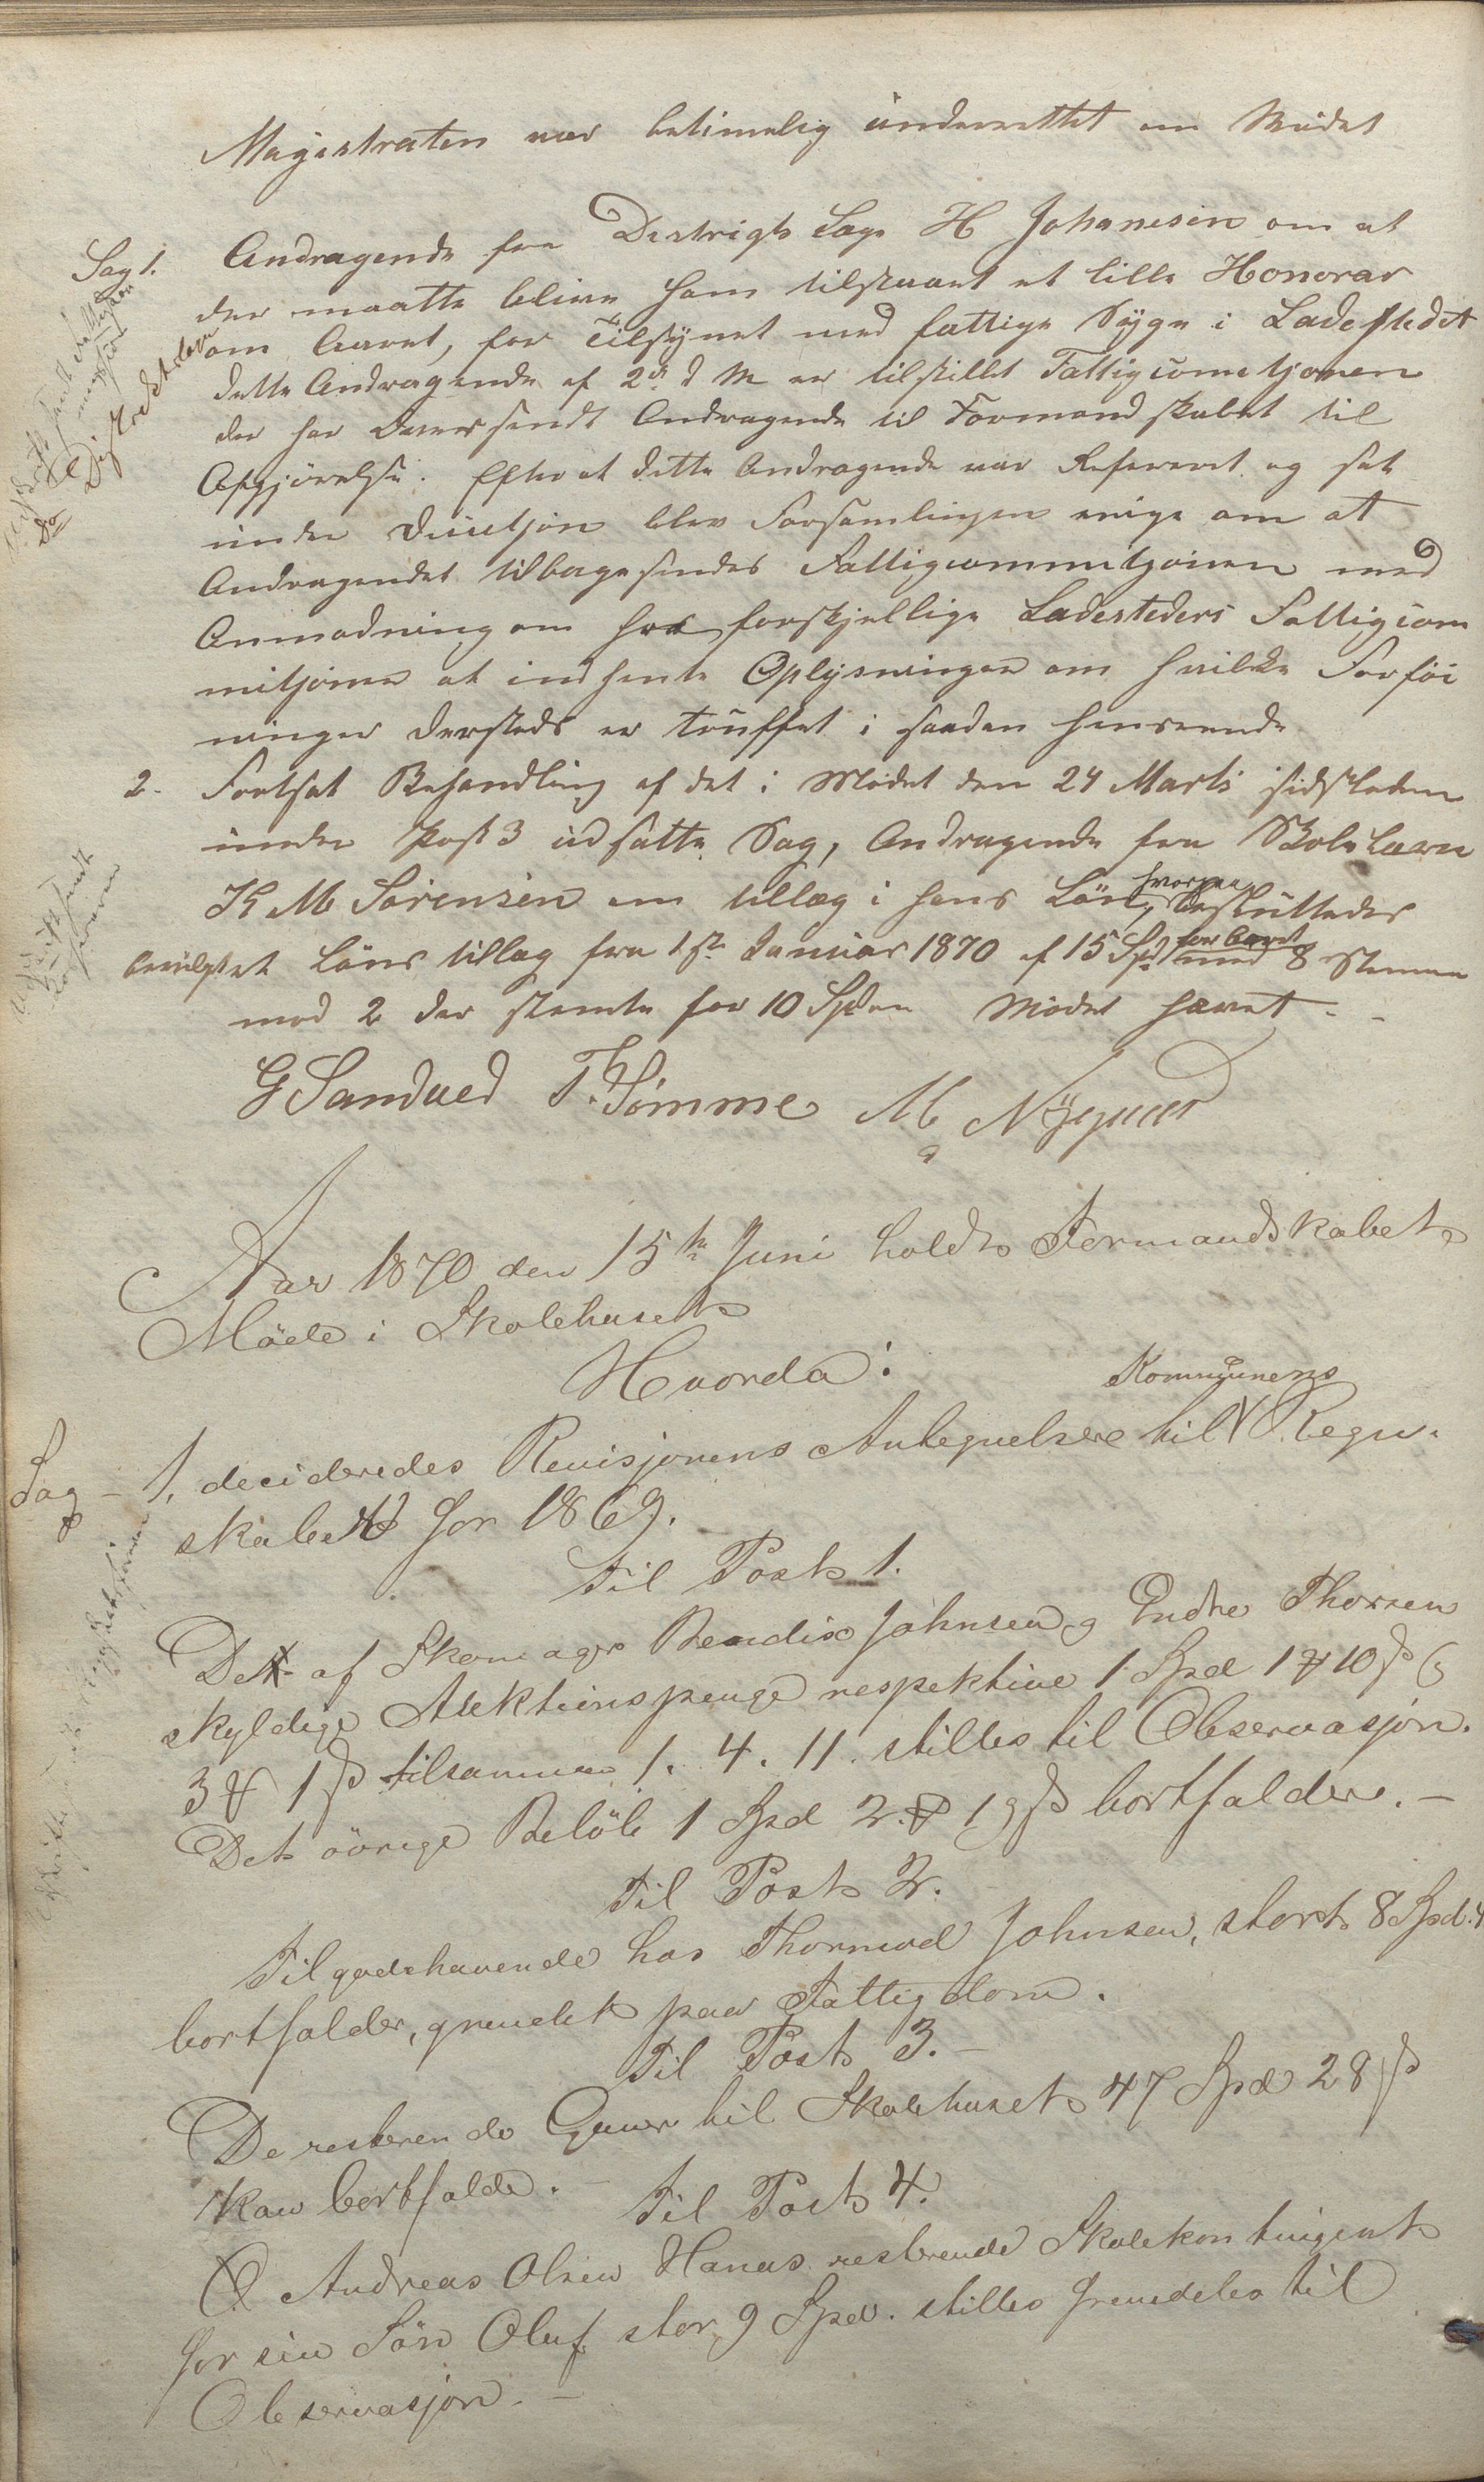 Magistraten var betimelig underrettet om Mødet
Sag 1. Andragende fra Destrigts Læge H Johanesen om at
der maatte blive ham tilstaaet et lille Honorar
om Aaret, for Tilsynet med fattige Syge i Ladestedet
dette Andragende af 2d d M er tilstillet Fattigcomitsjonen
der har oversendt Andragende til Formandskabet til
Afgjørelse. Efter at dette Andragende var Refereret og sat
under blev Forsamlingen enige om at
Andragendet tilbagesendes Fattigcommitsjonen med
Anmodning om hos forskjellige Ladesteders Fattigcom
mitsjoner at indhente Oplysninger om hvilke Forføi
ninger dersteds er truffet i saadan henseende
2. Fortsat Behandling af det i Mødet den 24 Marts sidstleden
under Post 3 udsatte Sag, Andragende fra Skolelærer
K M Sørensen om tillæg i hans Løn, hvorpaa besluttedes
bevilget Løns tillæg fra 1ste Januar 1870 af 15 Spd for Aaret med 8 Stemmer
mod 2 der stemte for 10 Spd Mødet hævet - -
G Sandved T. Sömme M Nÿgaard
Aar 1870 den 15de Juni holdt Formandskabet
Møde i Skolehuset
Hvorda:
Sag - 1. decideredes Revisjonens Antegnelser til Kommunens Regn-
skabet for 1869.
Til Post 1.
Det af Skomager Bendix Johnsen og Endre Thorsen
skyldige Auktionspenge respektive 1 Spd 1 # 10 ß og
3 # 1 ß tilsammen 1. 4. 11. stilles til Observasjon.
Det övrige Belöb 1 Spd 2 # 19 ß bortfalder. -
Til Post 2.
Tilgodehavende hos Thormod Johnsen, stort 8 Spd. 4
bortfalder, grundet paa Fattigdom.
Til Post 3. -
De resterende Gaver til Skolehuset 47 Spd 28 ß
kan bortfalde. -
Til Post 4.
Andreas Olsen Hanas resterende Skolekontingent
for sin Sön Oluf stor 9 Spd. stilles fremdeles til
Observasjon. -